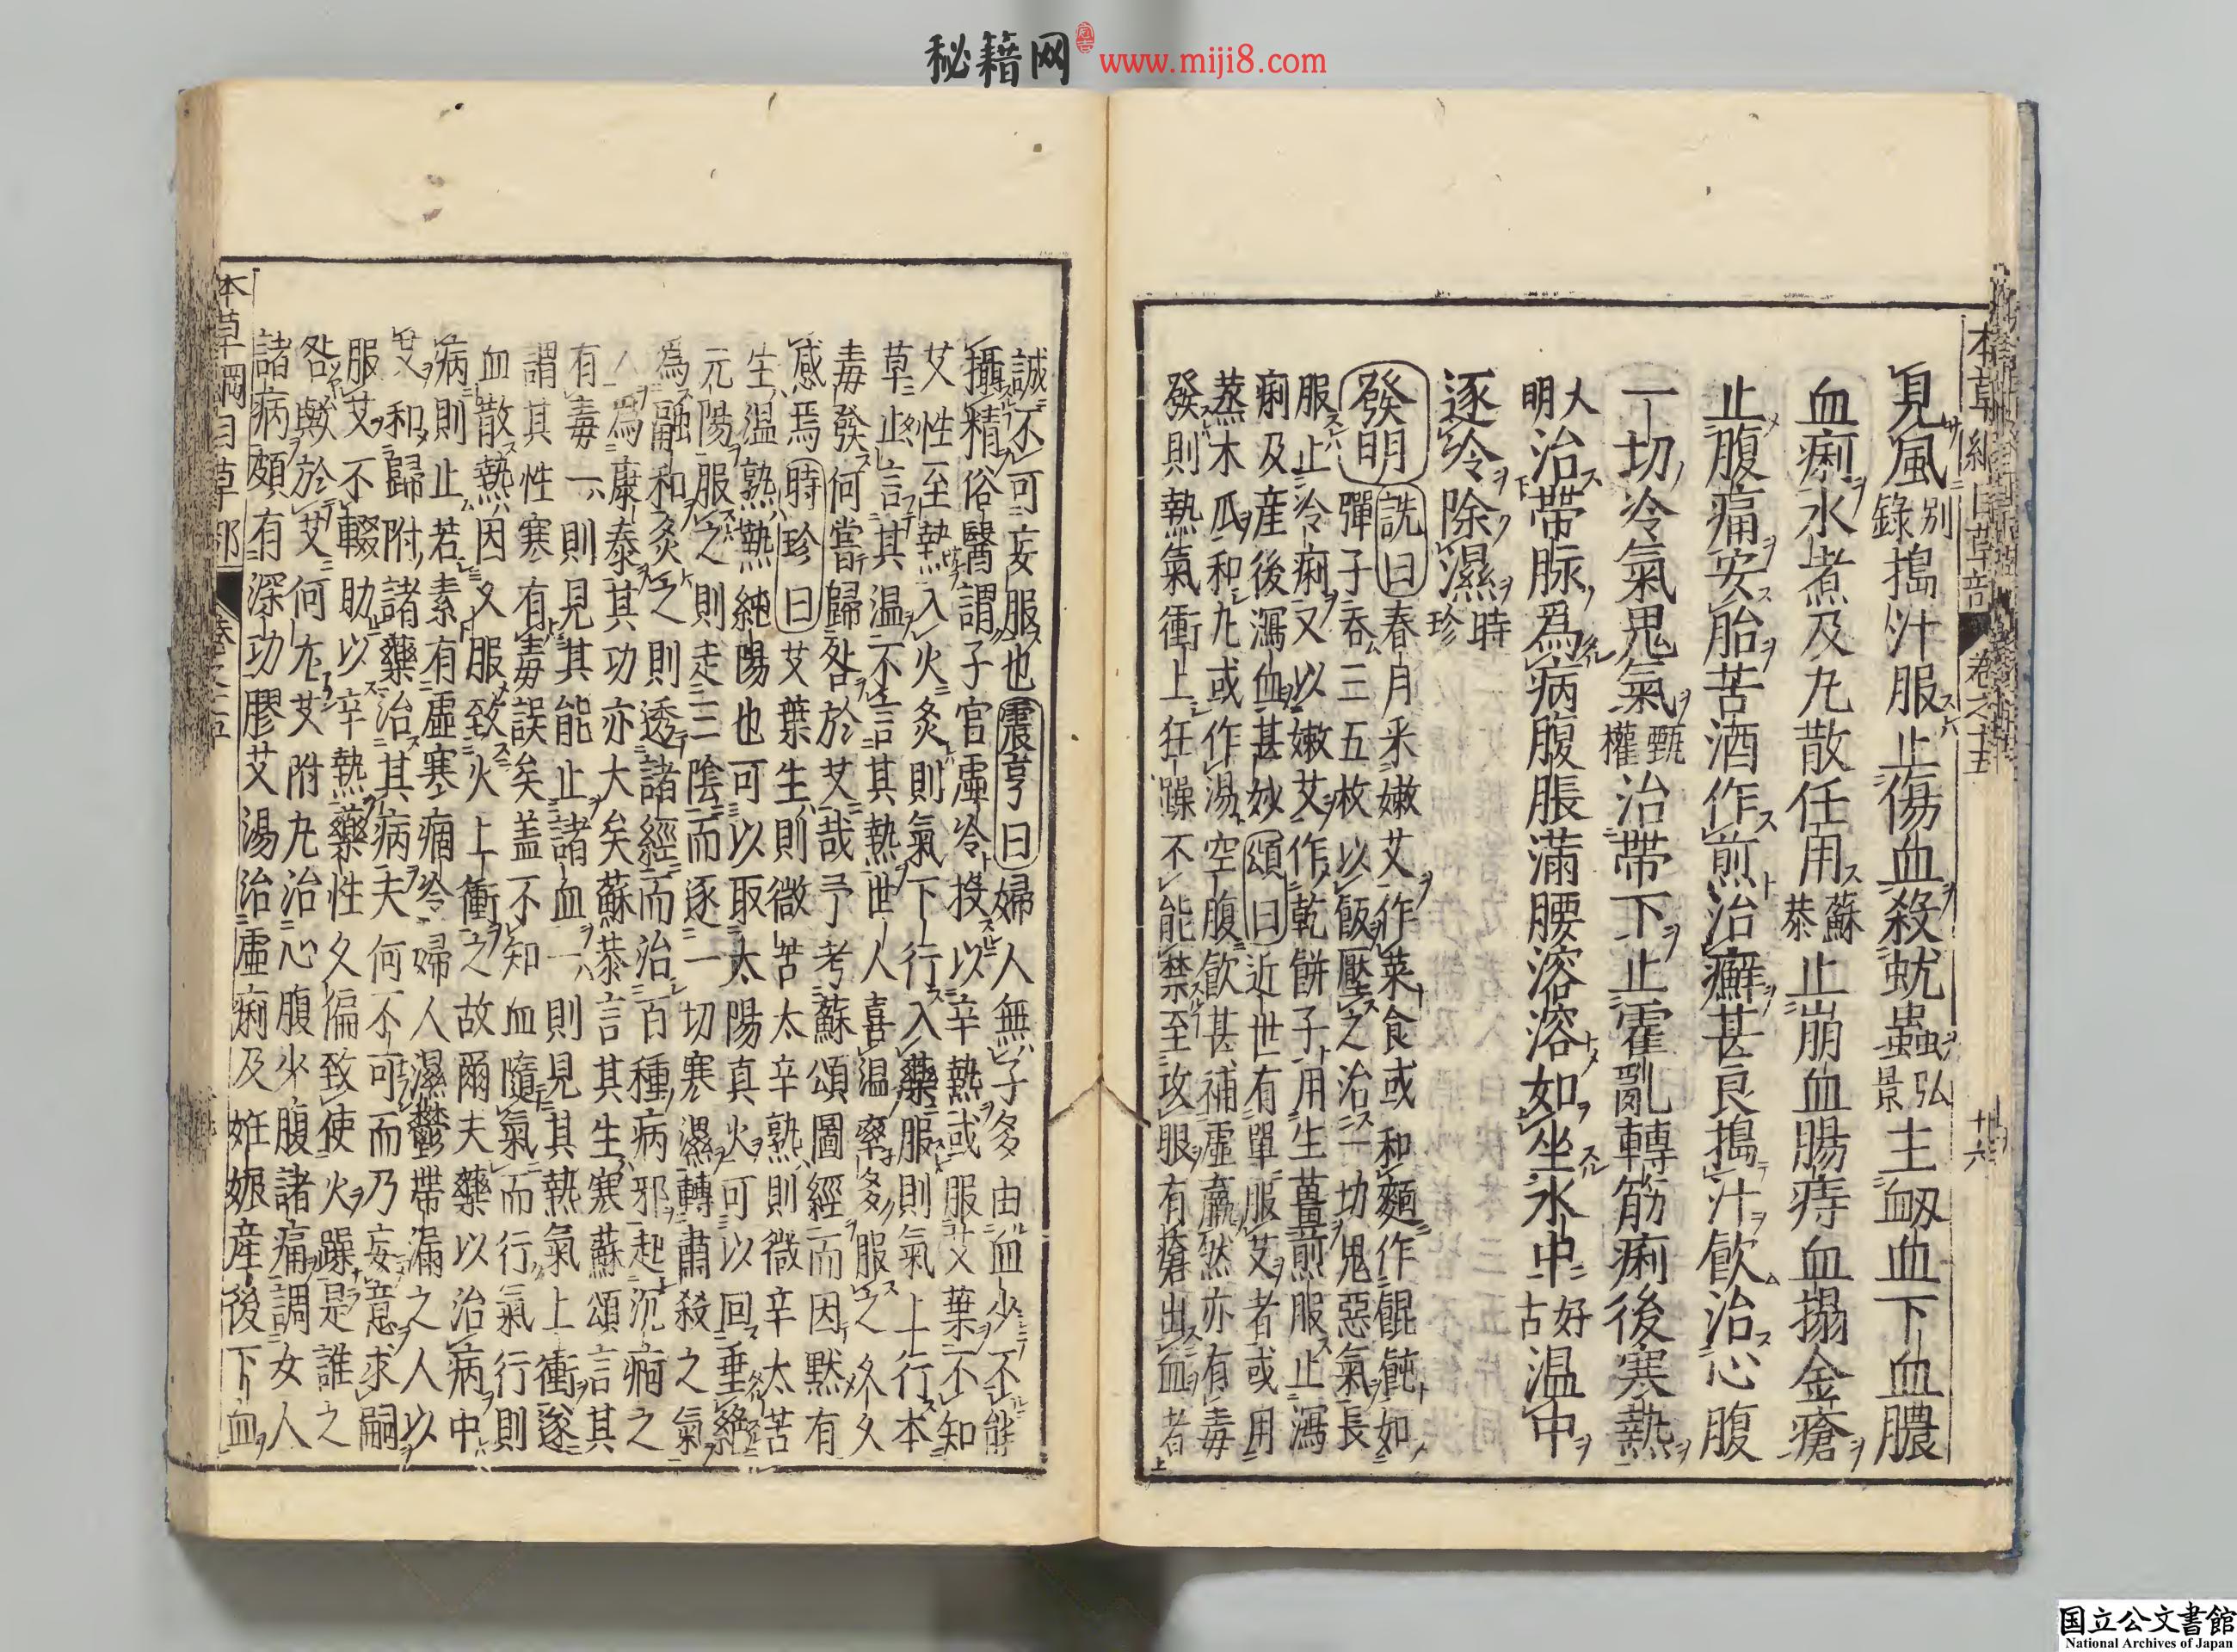 秘籍网 www.miji8.com
本草綱目草部 卷之十五 十六
見風別錄搗汁服止傷血殺蚘蟲弘景主衂血下血膿
血痢水煮及丸散任用蘇恭止崩血腸痔血搨金瘡
止腹痛安胎苦酒作煎治癬甚良搗汁飲治心腹
一切冷氣鬼氣甄權治帶下止霍亂轉筋痢後寒熱
大明治帶脉爲病腹脹滿腰溶溶如坐水中好古温中
逐冷除濕時珍
發明 詵曰春月采嫩艾作菜食或和麵作餛飩如
彈子吞三五枚以飯壓之治一切鬼惡氣長
服止冷痢又以嫩艾作乾餅子用生薑煎服止瀉
痢及産後瀉血甚妙頌曰近世有單服艾者或用
蒸木瓜和丸或作湯空腹飲甚補虛羸然亦有毒
發則熱氣衝上狂躁不能禁至攻眼有瘡出血者
誠不可妄服也震亨曰婦人無子多由血少不能
攝精俗醫謂子宮虛冷投以辛熱或服艾葉不知
艾性至熱入火灸則氣下行入藥服則氣上行本
草止言其温不言其熱世人喜温率多服之久久
毒發何嘗歸咎於艾哉予考蘇頌圖經而因默有
感焉時珍曰艾葉生則微苦太辛熟則微辛太苦
生温熟熱純陽也可以取太陽真火可以回垂絶
元陽服之則走三陰而逐一切寒濕轉肅殺之氣
為融和灸之則透諸經而治百種病邪起沉痾之
人為康泰其功亦大矣蘇恭言其生寒蘇頌言其
有毒一則見其能止諸血一則見其熱氣上衝遂
謂其性寒有毒誤矣盖不知血隨氣而行氣行則
血散熱因久服致火上衝之故爾夫藥以治病中
病則止若素有虛寒痼冷婦人濕鬱帶漏之人以
艾和歸附諸藥治其病夫何不可而乃妄意求嗣
服艾不輟助以辛熱藥性久偏致使火躁是誰之
咎歟於艾何尤艾附丸治心腹少腹諸痛調女人
諸病頗有深功膠艾湯治虛痢及妊娠産後下血
本草綱目草部 卷之十五
国立公文書館
National Archives of Japan